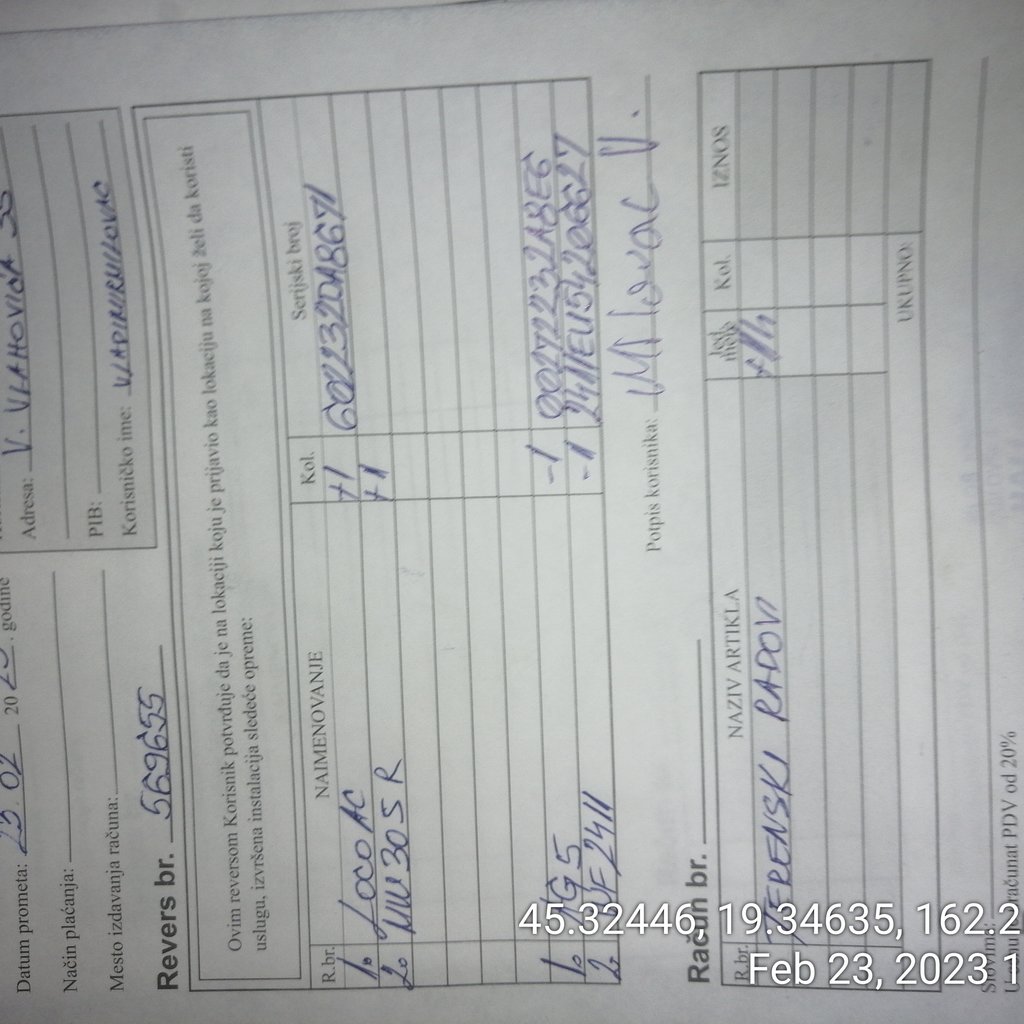 Datum prometa: 23.02 2023. godine
Način plaćanja:
Mesto izdavanja računa:
Adresa: V. VLAHOVIĆA
PIB:
Korisničko ime: VLADIMIRMILOVAC
Revers br. 569655
Ovim reversom Korisnik potvrđuje da je na lokaciji koju je prijavio kao lokaciju na kojoj želi da koristi
uslugu, izvršena instalacija sledeće opreme:
R.br. NAIMENOVANJE Kol. Serijski broj
1. LOCO AC +1 602232DA8671
2. MW 30S R +1
1. -1 00272232A8E6
2. 2411 -1 2411EU54206627
Potpis korisnika: Milovac V.
Račun br.
R.br. NAZIV ARTIKLA Jed. mere Kol. IZNOS
TERENSKI RADOVI
UKUPNO:
Slovima:
računat PDV od 20%
45.32446, 19.34635, 162.2
Feb 23, 2023 1